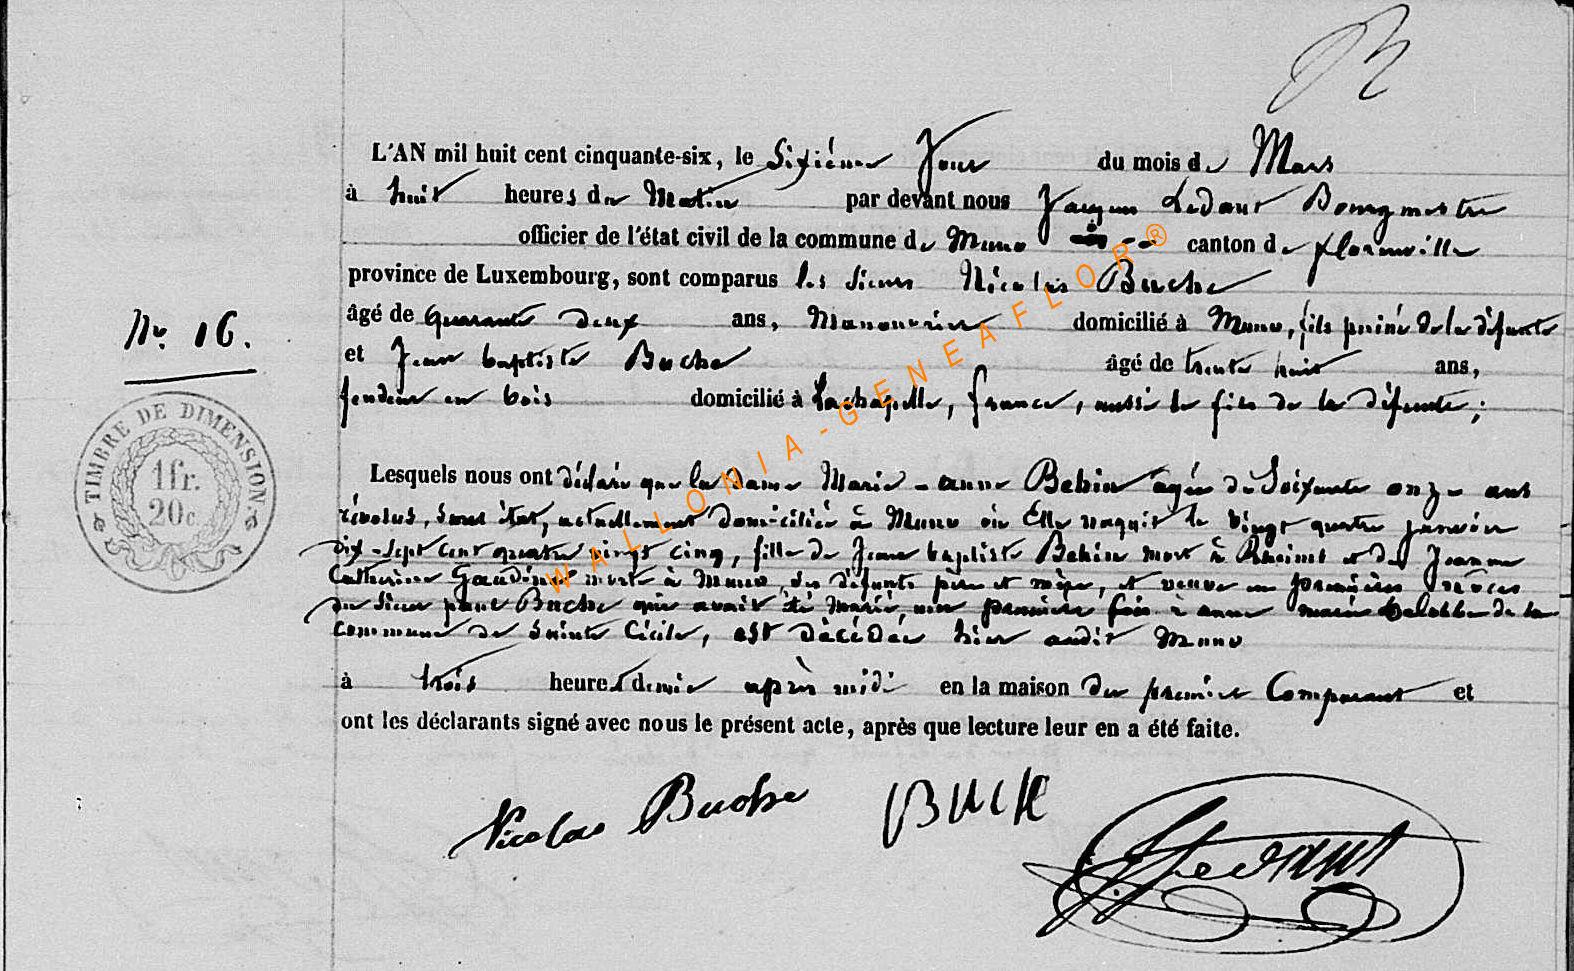 L'AN mil huit cent cinquante-six, le Sixième Jour du mois de Mars
à huit heures du Matin par devant nous Jacques Ledant Bourgmestre
officier de l'état civil de la commune de Muno canton de florenville
province de Luxembourg, sont comparus les sieurs Nicolas Buche
âgé de quarante deux ans, Manouvrier domicilié à Muno, fils puiné de la défunte
No. 16.
et Jean baptiste Buche âgé de trente huit ans,
fendeur en bois domicilié à Lachapelle, france, aussi le fils de la défunte;
TIMBRE DE DIMENSION.
1fr.
20c.
Lesquels nous ont déclaré que la Dame Marie-anne Behin agée de Soixante onze ans
révolus, sans état, actuellement domiciliée à Muno où Elle naquit le vingt quatre janvier
dix-sept cent quatre vingt cinq, fille de Jean baptiste Behin mort à Rheims et de Jeanne
Catherine morte à Muno, ses défunts père et mère, et veuve en premières nôces
du sieur paul Buche qui avait été marié une première fois à anne marie de la
commune de Sainte Cécile, est décédée hier audit Muno
à trois heures demie après midi en la maison du premier Comparant et
ont les déclarants signé avec nous le présent acte, après que lecture leur en a été faite.
Nicolas Buche BUCHE Ledant
WALLONIA-GENEAFLOR®